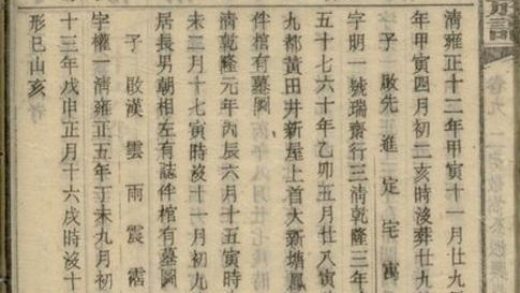 清雍正十二年甲寅十一月廿九
年甲寅四月初二亥時沒葬廿九
子啟先進定宅寓
字明一號瑞齋行三清乾隆三年
五十七六十年乙卯五月廿八寅
九都黄田井新屋上首大新塘鳳
件棺有墓圖
清乾隆元年丙辰六月十五寅時
未二月十七寅時沒十一月初九
居長男朝相左有誌件棺有墓圖
子啟漢雲雨震霑
字權一清雍正五年丁未九月初
十三年戊申正月十六戌時沒十
形巳山亥